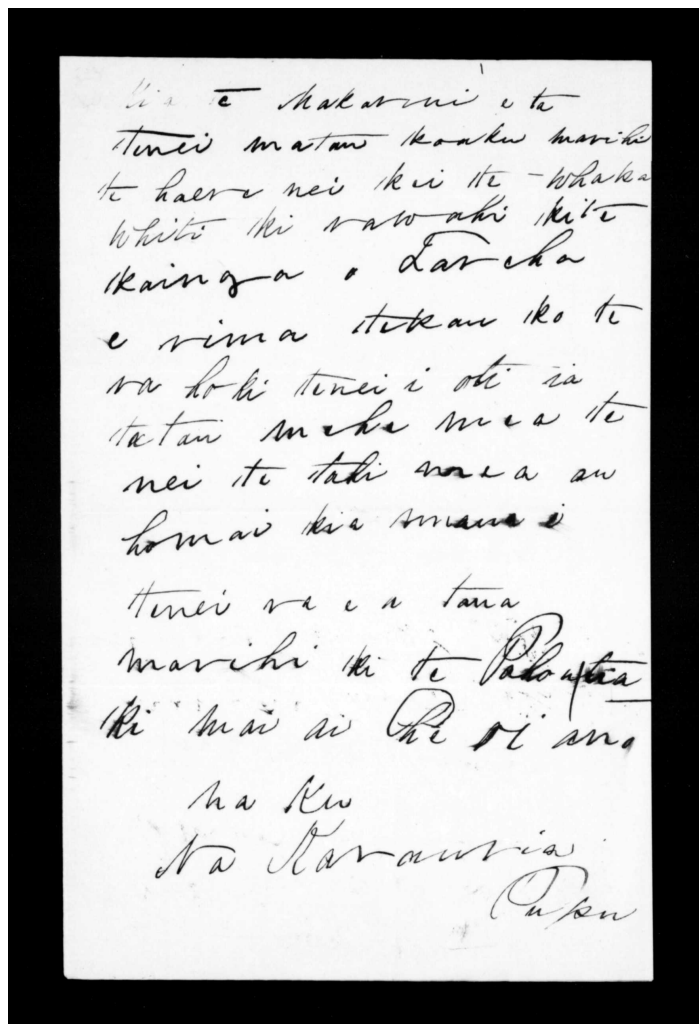 Kia te Makarini e ta
tenei matau ko aku marihi
te haere nei kei te whaka
whiti ki rawahi ki te
kainga o Tareha
e rima tekau ko te
ra hoki tenei i oti ia
tatau mehe mea te
nei te tahi mea au
homai kia maua i
tenei ra e a tana
marihi ki te
ki mai ai
na Ku
Na Karauria
Pupu